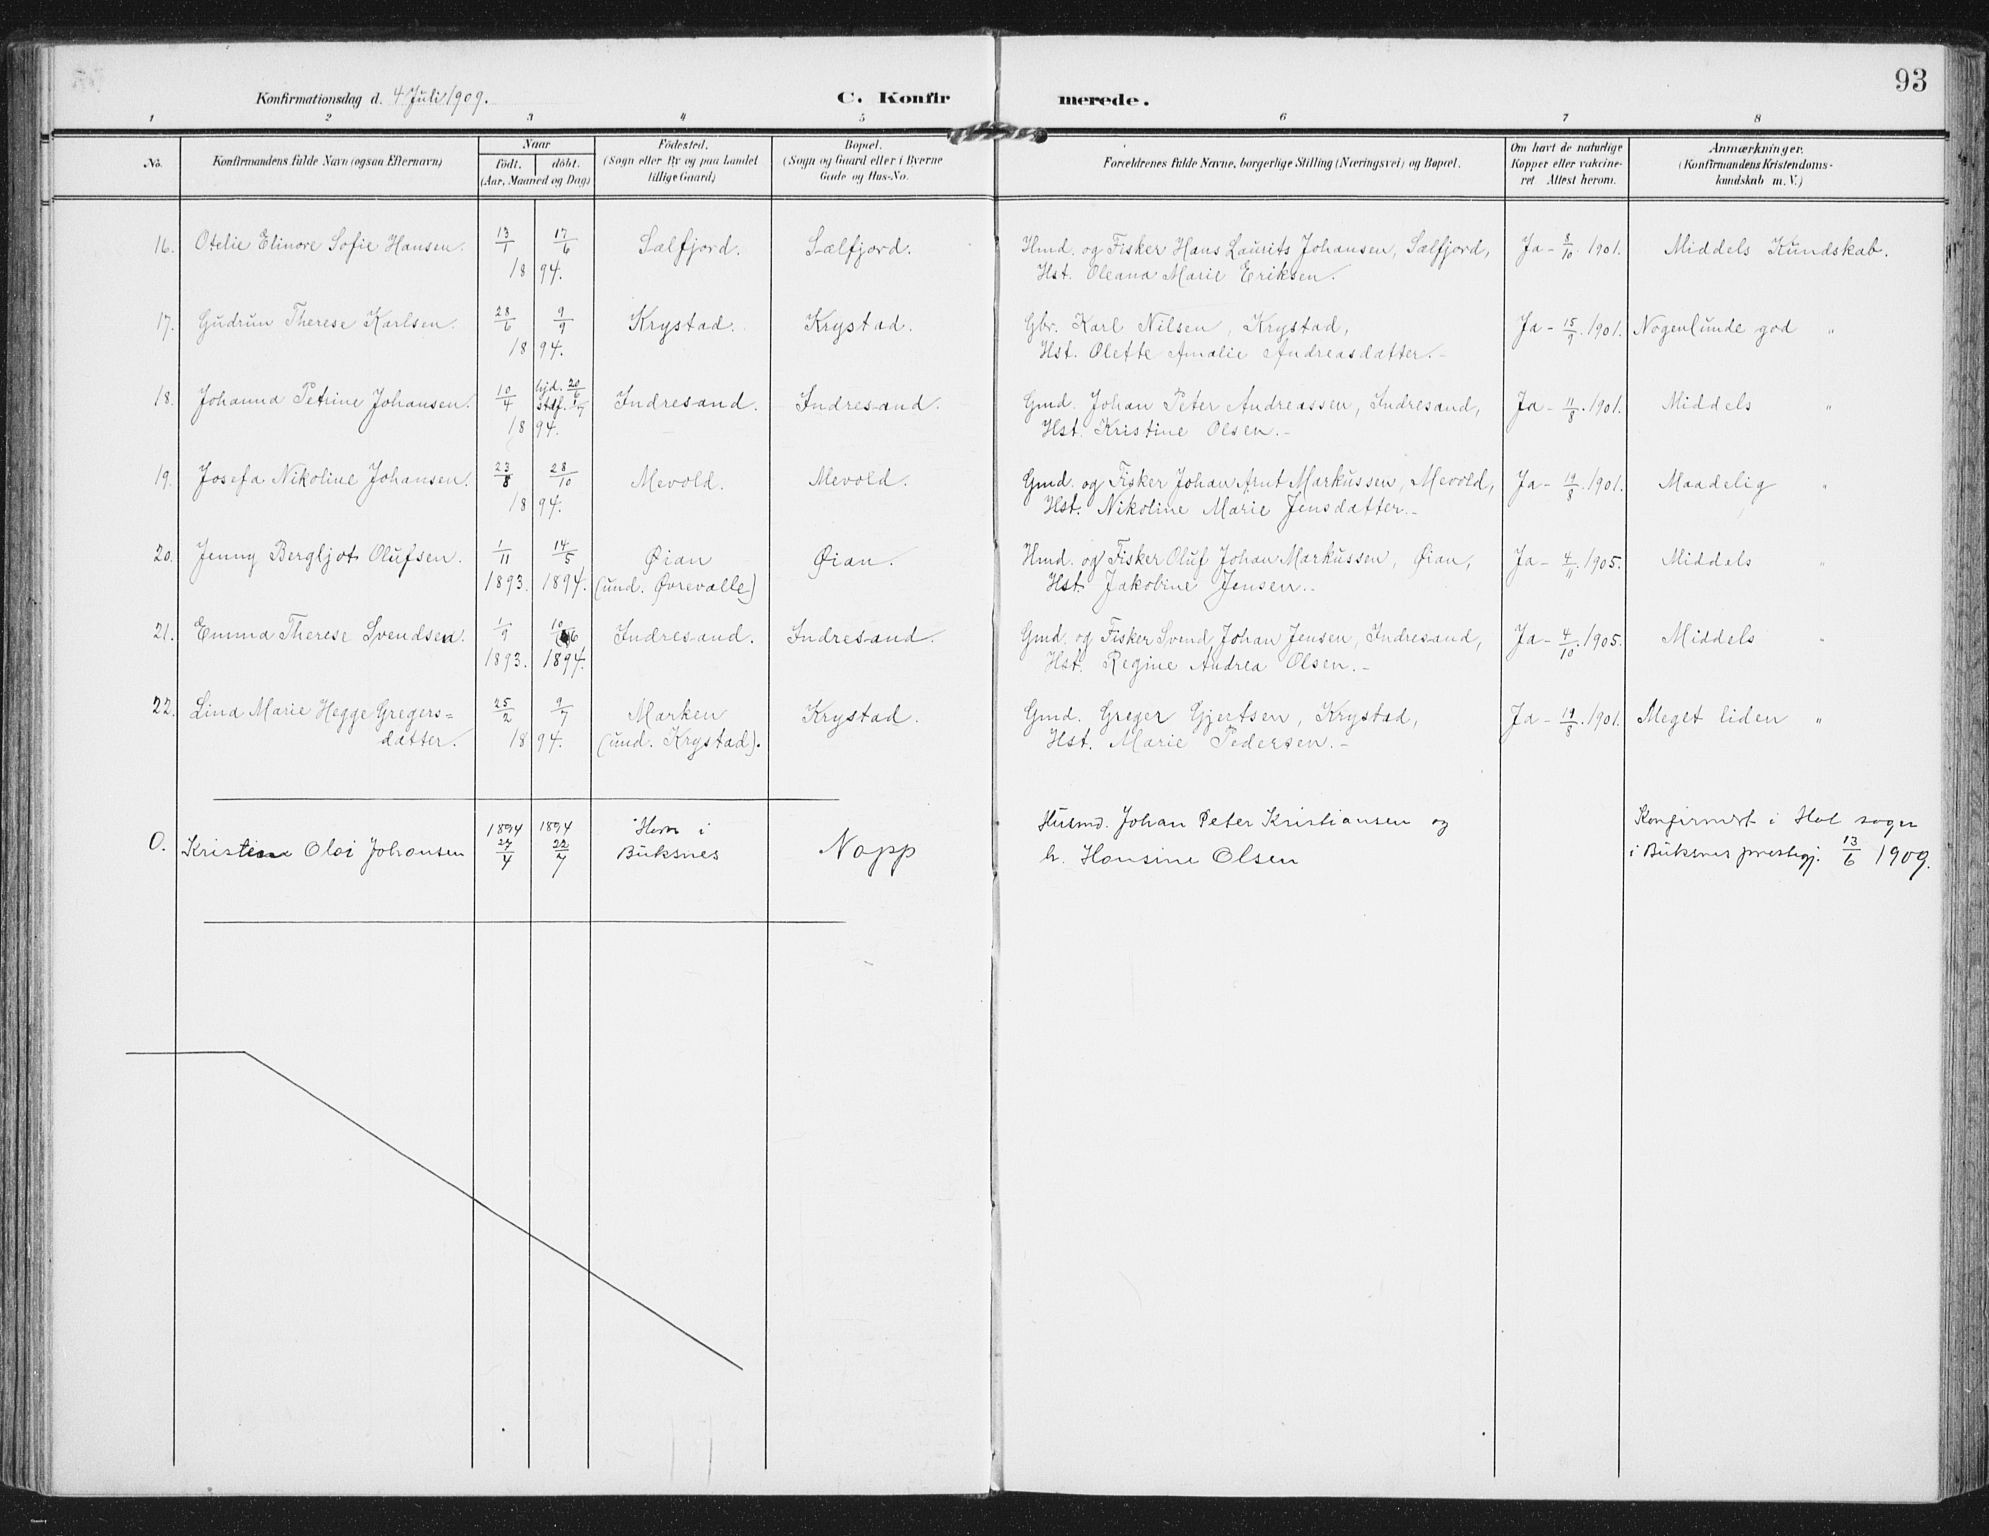 93
Konfirmationsdag d. 4 Juli 1909.
C. Konfirmerede.
1 2 3 4 5 6 7 8
No. Konfirmandens fulde Navn (ogsaa Efternavn)
Naar
født. døbt.
(Aar, Maaned og Dag)
Fødested.
(Sogn eller By og paa Landet
tillige Gaard)
Bopæl.
(Sogn og Gaard eller i Byerne
Gade og Hus-No.
Forældrenes fulde Navne, borgerlige Stilling (Næringsvei) og Bopæl.
Om havt de naturlige
Kopper eller vakcine-
ret Attest herom.
Anmærkninger.
(Konfirmandens Kristendoms-
kundskab m. V.)
16. Otelie Elinore Sofie Hansen. 13/1 17/6 Sælfjord. Sælfjord. Hmd. og Fisker Hans Laurits Johansen, Sælfjord, Ja - 8/10. 1901. Middels Kundskab.
18 94. Hst. Oleana Marie Eriksen.
17. Gudrun Therese Karlsen. 28/6 9/9 Krystad. Krystad. Gbr. Karl Nilsen, Krystad, Ja - 15/9. 1901. Nogenlunde god "
18 94. Hst. Olefte Amalie Andreasdatter. -
18. Johanna Petrine Johansen. 10/4 hjd. 20/6 stdf. Indresand. Indresand. Gmd. Johan Peter Andreassen, Indresand, Ja - 11/8. 1901. Middels "
18 94. Hst. Kristine Olsen. -
19. Josefa Nikoline Johansen. 23/8 28/10 Mevold. Mevold. Gmd. og Fisker Johan Arnt Markussen, Mevold, Ja - 19/8. 1901. Maadelig "
18 94. Hst. Nikoline Marie Jensdatter. -
20. Jenny Bergljot Olufsen. 1/11 14/5 Øian Øian. Hmd. og Fisker Oluf Johan Markussen, Øian, Ja - 4/11. 1905. Middels "
1893. 1894. (und. Øvrevalle) Hst. Jakobine Jensen. -
21. Emma Therese Svendsen. 1/9 10/6 Indresand. Indresand. Gmd. og Fisker Svend Johan Jensen, Indresand, Ja - 4/10. 1905. Middels "
1893. 1894. Hst. Regine Andrea Olsen. -
22. Lina Marie Hegge Gregers= 25/2 9/7 Marken Krystad. Gmd. Greger Gjertsen, Krystad, Ja - 19/8. 1901. Meget liden "
datter. 18 94. (und. Krystad). Hst. Marie Pedersen. -
1894 1894 Horn i Husmd. Johan Peter Kristiansen og Konfirmert i Hol sogn
0. Kristine Olai Johansen 27/4 22/7 Buksnes Napp h. Hansine Olsen i Buksnes prestegj. 13/6 1909.